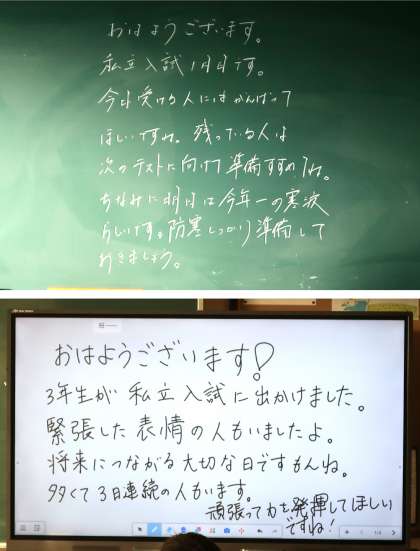 おはようございます。
私立入試1日目です。
今日受ける人にはがんばって
ほしいですね。残っている人は
次のテストに向けて準備すすめてね。
ちなみに明日は今年一の寒波
らしいです。防寒しっかり準備して
おきましょう。
おはようございます!
3年生が私立入試に出かけました。
緊張した表情の人もいましたよ。
将来につながる大切な日ですもんね。
多くて3日連続の人もいます。
頑張って力を発揮してほしい
ですね!